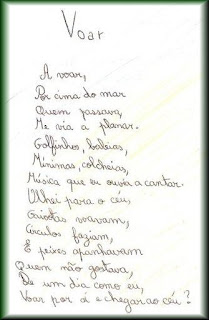 Voar
A voar,
Por cima do mar
Quem passava,
Me via a planar.
Golfinhos, baleias,
Mínimas, colcheias,
Música que eu ouvia a cantar.
Olhei para o céu,
Gaivotas voavam,
Círculos faziam,
E peixes apanhavam
Quem não gostava,
De um dia como eu,
Voar por aí e chegar ao céu?